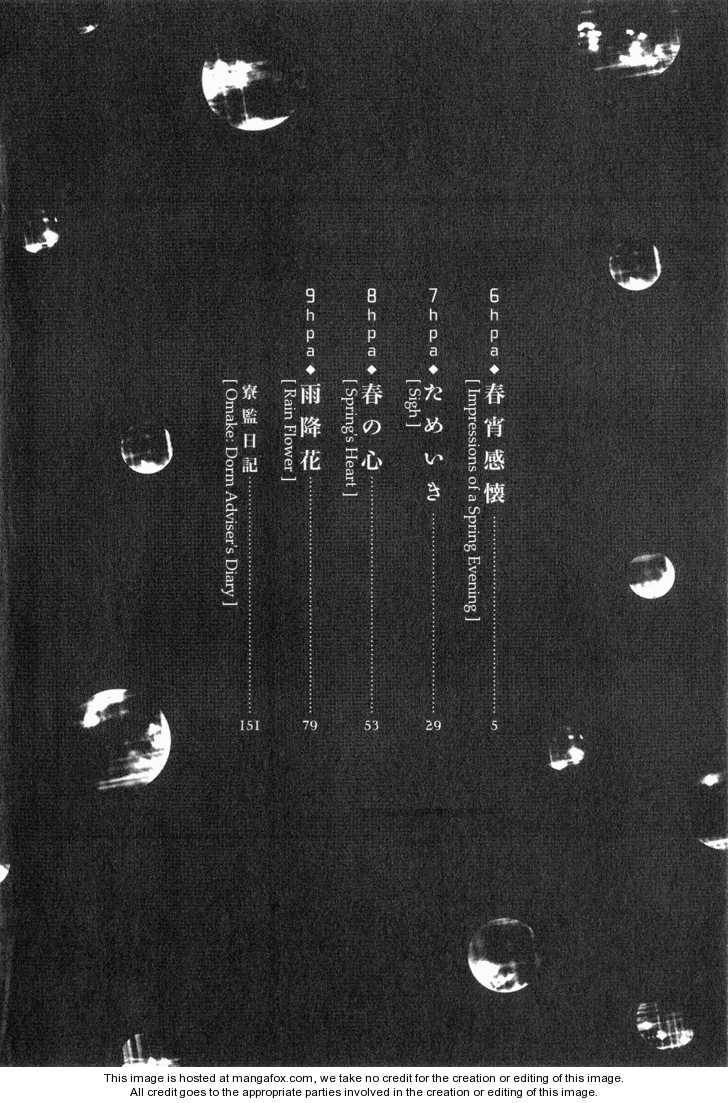 6hpa◆春宵感懐 5
[ Impressions of a Spring Evening ]
7hpa◆ためいき 29
[ Sigh ]
8hpa◆春の心 53
[ Spring's Heart ]
9hpa◆雨降花 79
[ Rain Flower ]
寮監日記 151
[ Omake: Dorm Adviser's Diary ]
This image is hosted at mangafox.com, we take no credit for the creation or editing of this image.
All credit goes to the appropriate parties involved in the creation or editing of this image.